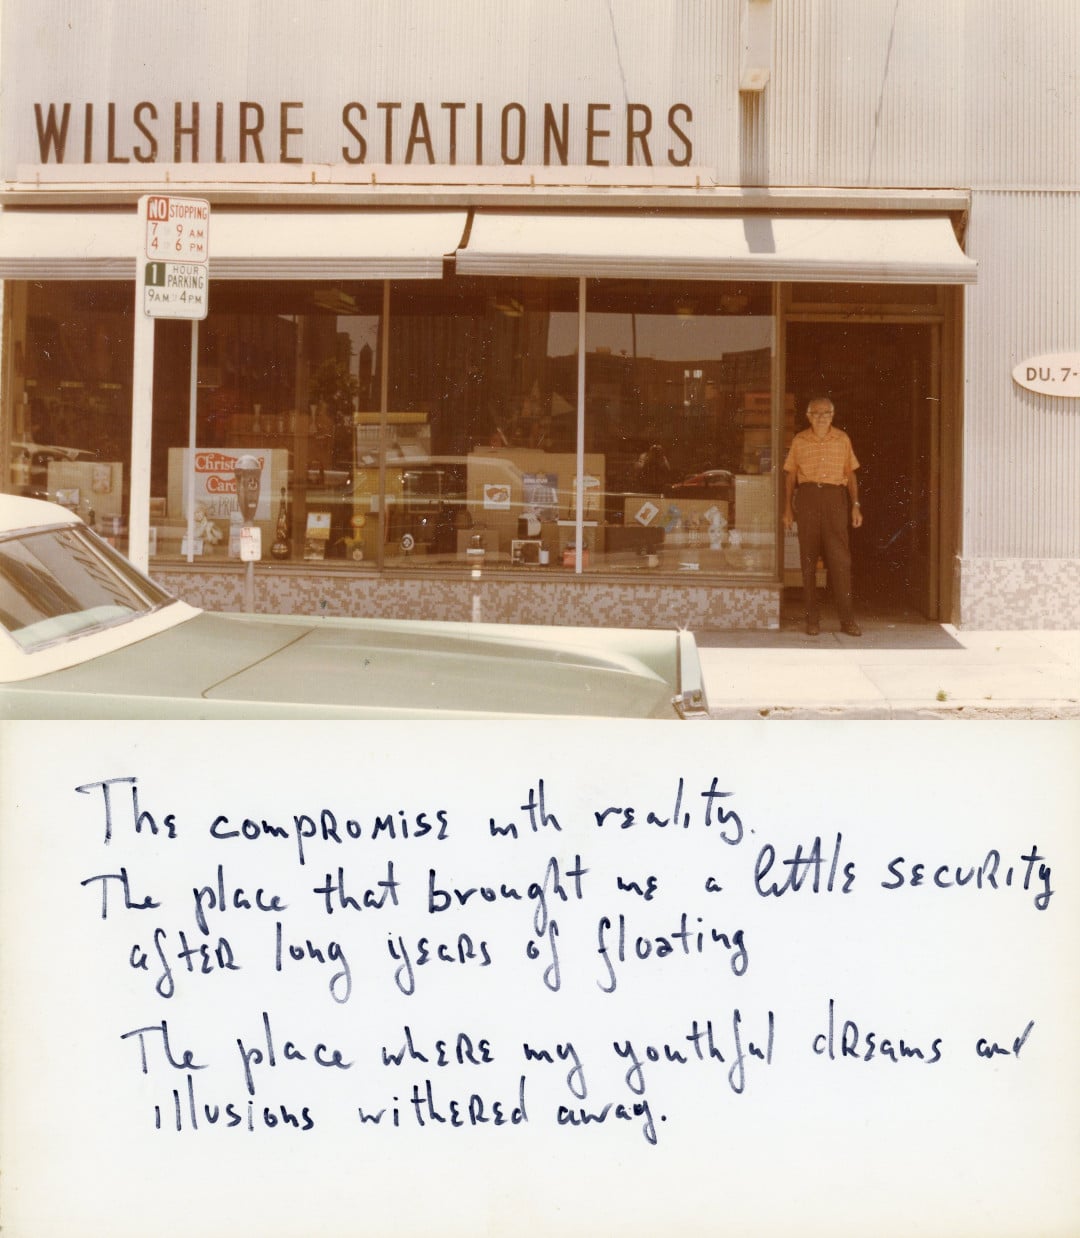 WILSHIRE STATIONERS
NO STOPPING
7 9 AM
4 6 PM
1 HOUR
PARKING
9AM 4PM
DU. 7-
Christ
Caro
The compromise with reality.
The place that brought me a little security
after long years of floating
The place where my youthful dreams and
illusions withered away.